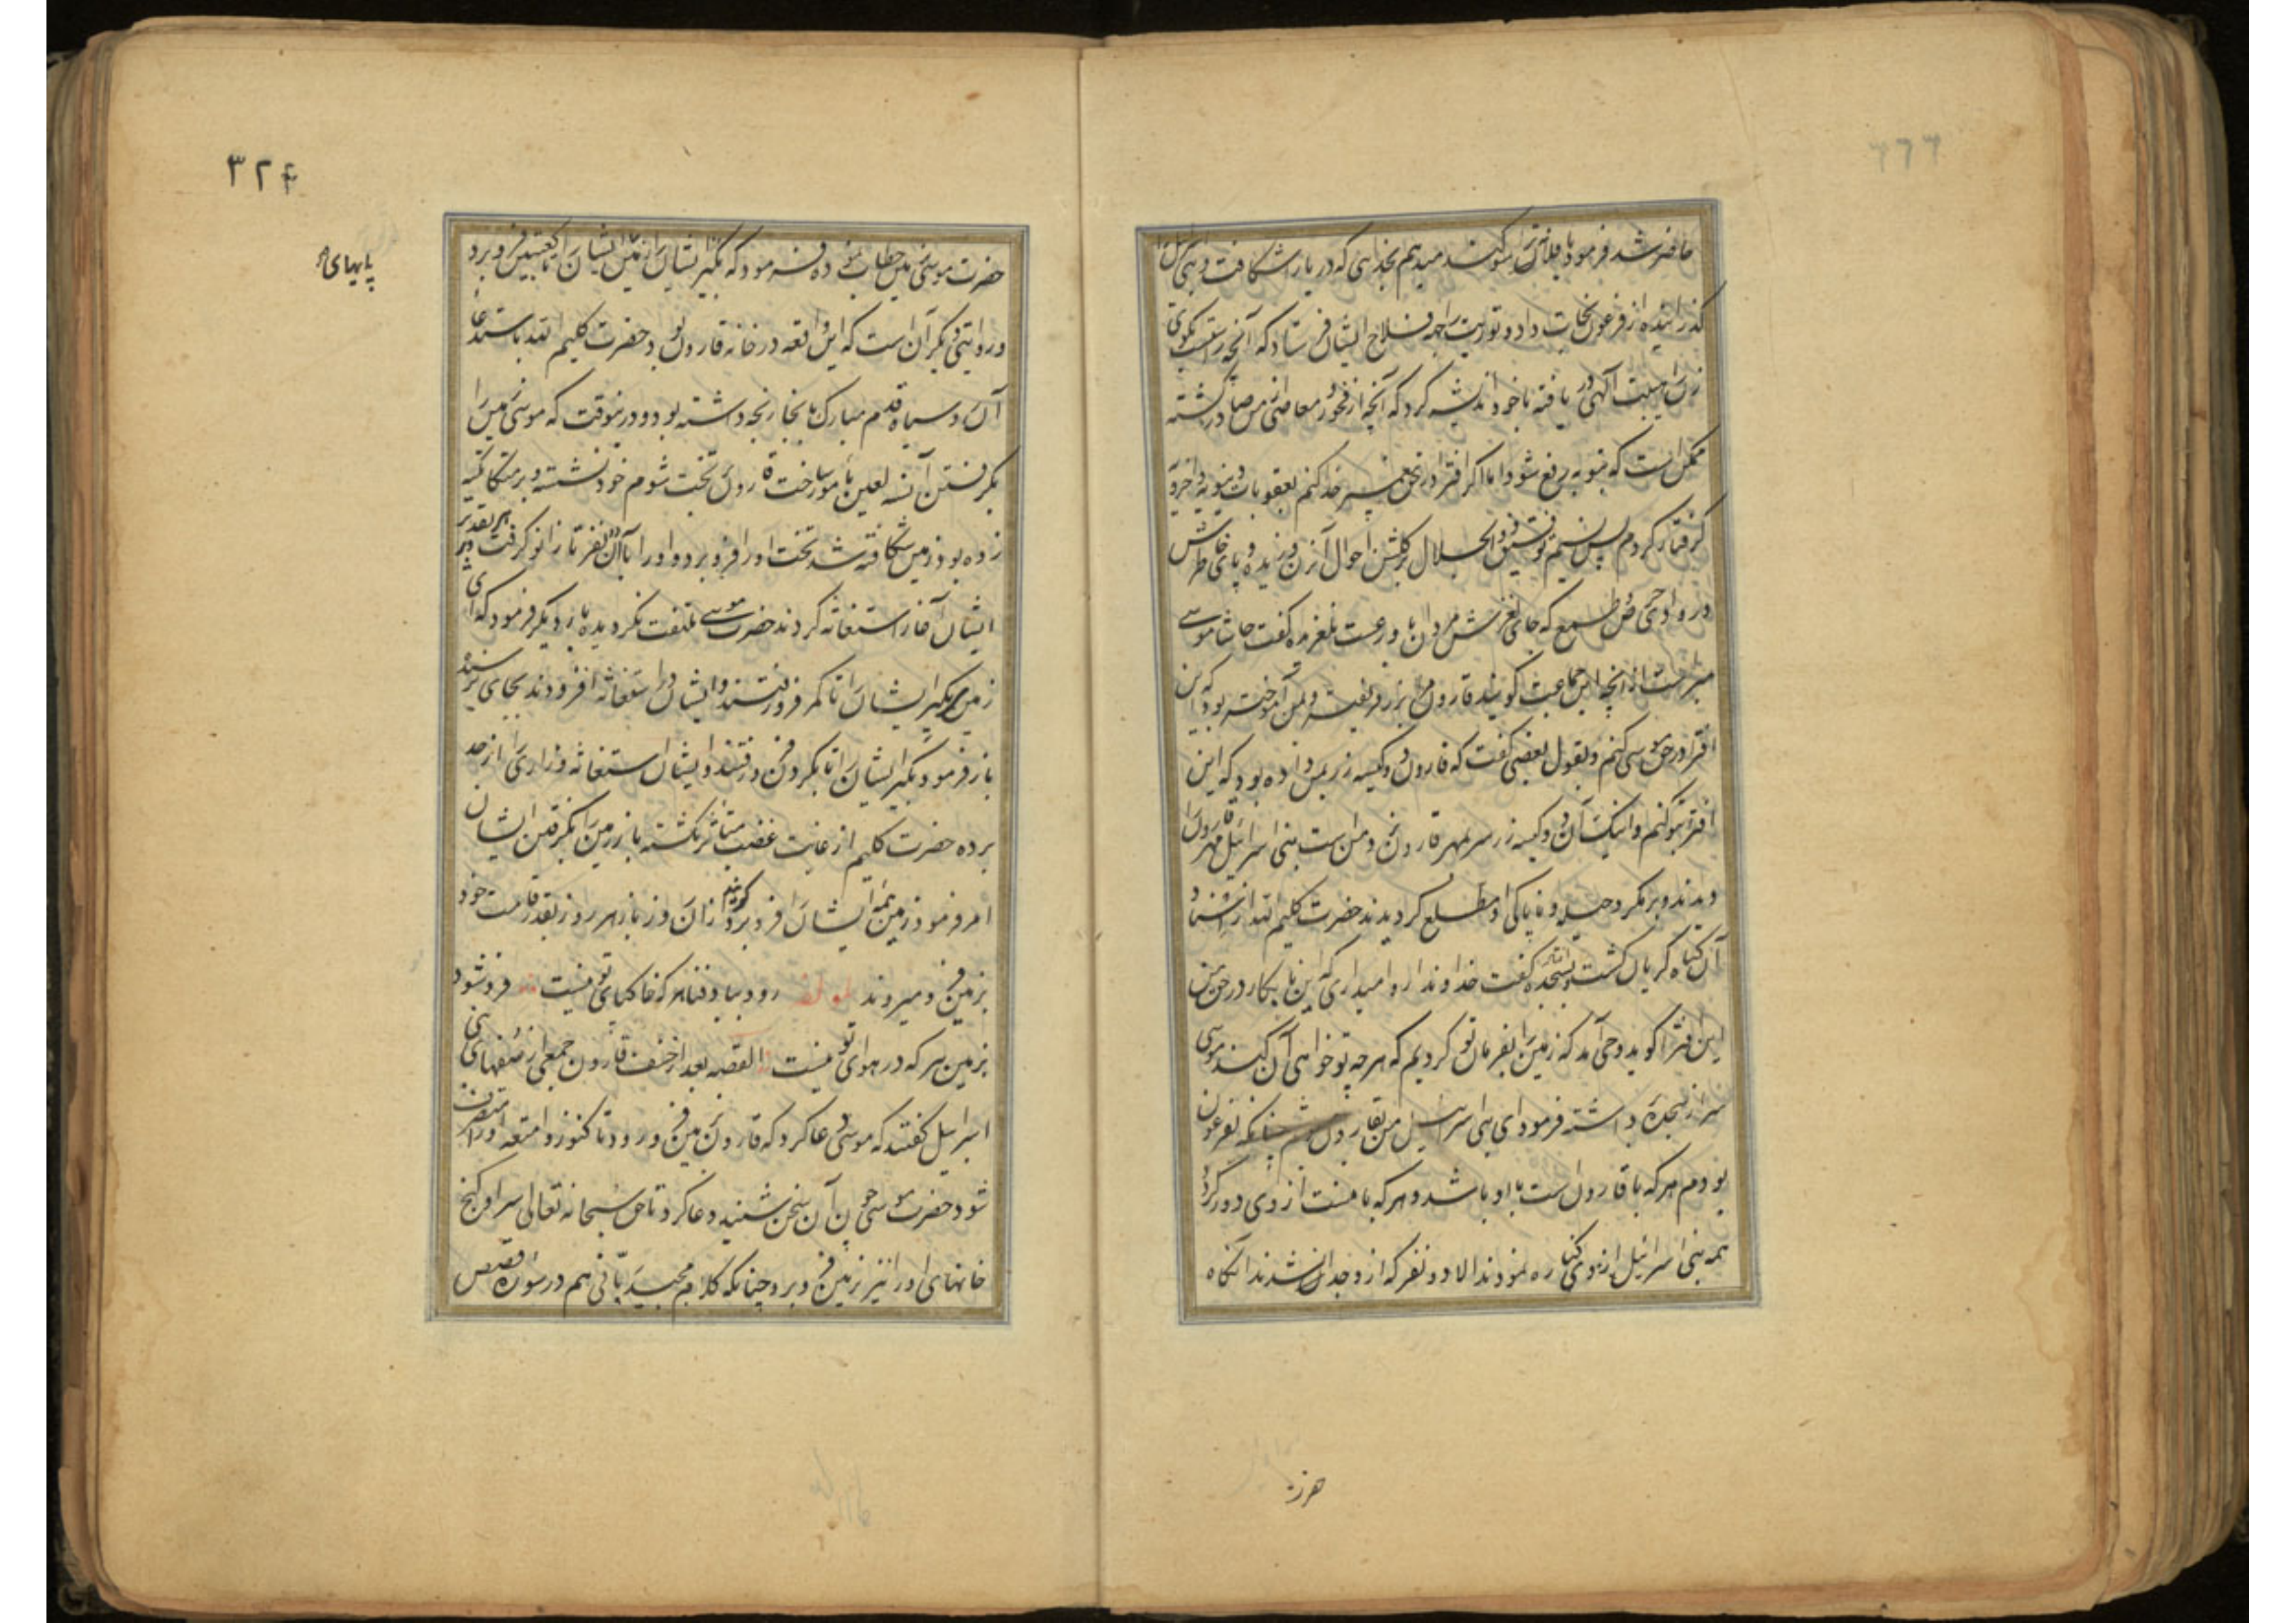 حاضر شد فرمود یا فلانه ترا سوکند میدهم بخدایی که دریا را شکافت و بنی اسرائیل را
کذرانیده از فرعون نجات داد و توریت را جهه فلاح ایشان فرستاد که آنچه راستست بکوی
زن را هیبت آلهی در یافته با خود اندیشه کرد که آنچه از فجور و معاصی از من صادر کشته
ممکن است که بتوبه رفع شود اما اکر افترا در حق پیغمبر خدا کنم بعقوبات دنیویه و اخرویه
کرفتار کردم پس نسیم توفیق ذوالجلال بر کلشن احوال آنزن وزیده و پای خاطرش
در وادی حرص و طمع که جای لغزش مردان با ورعست نلغزیده کفت حاشا موسی
مبراست از آنچه این جماعت کویند قارون مرا بزر فریفته و بمن آموخته بود که من این
افترا در حق موسی کنم و بقول بعضی کفت که قارون دو کیسه زر بمن داده بود که این
افترا بتو کنم و اینک آن دو کیسه زر سر بمهر قارون نزد من است بنی اسرائیل مهر قارون را
دیدند و بر مکر و حیله و ناپاکی او مطلع کردیدند حضرت کلیم الله از افساد
آن کناه کریان کشت و بسجده افتاد کفت خداوندا روا میداری که این نابکار در حق من
این افترا کوید وحی آمد که زمین را بفرمان تو کردیم که هر چه تو خواهی آن کند موسی
سر از سجده برداشته فرمود ای بنی اسرائیل من بقارون چنانکه بفرعون
بودم هر که با قارون است با او باشد و هر که با منست از وی دور کردد
همه بنی اسرائیل از وی کناره نمودند الا دو نفر که از وجدا نشدند آنکاه
۳۲۴
حضرت موسی زمین خطاب نموده فرمود که بکیر ایشان را زمین ایشان را تا کعبین فرو برد
و روایتی دیکر آن است که این واقعه در خانه قارون بود حضرت کلیم الله باستدعای
آن رو سیاه قدم مبارک بانجا رنجه داشته بود و درینوقت که موسی زمین را
بکرفتن آن سه لعین مامور ساخت قارون بر تخت شوم خود نشسته و بر متکا تکیه
زده بود زمین شکافته شد تخت او را فرو برد و او را با آن دو نفر تا زانو کرفت بهر تقدیر
ایشان آغاز استغاثه کردند حضرت موسی ملتفت نکردیده بار دیکر فرمود که ای
زمین بکیر ایشان را تا کمر فرو رفتند و ایشان در استغاثه افزودند بجای نرسید
باز فرمود بکیر ایشان را تا بکردن فرو رفتند و ایشان استغاثه و زاری را از حد
برده حضرت کلیم از غایت غضب متأثر نکشته باز زمین را بکرفتن ایشان
امر فرمود زمین همه ایشان را فرو برد کویند از آن روز باز هر روز بقدر قامت خود
بزمین فرو میروند رود بباد فنا هر که خاکپای تو نیست فرو شود
بزمین هر که در هوای تو نیست القصه بعد از خسف قارون جمعی از سفهای بنی
اسرائیل کفتند که موسی دعا کرد که قارون بزمین فرو رود تا کنوز و امتعه او را متصرف
شود حضرت موسی چون آن سخن شنید دعا کرد تا حق سبحانه تعالی سرا و کنج
خانهای او را نیز بزمین فرو برد چنانکه کلام مجید ربانی هم در سوره قصص